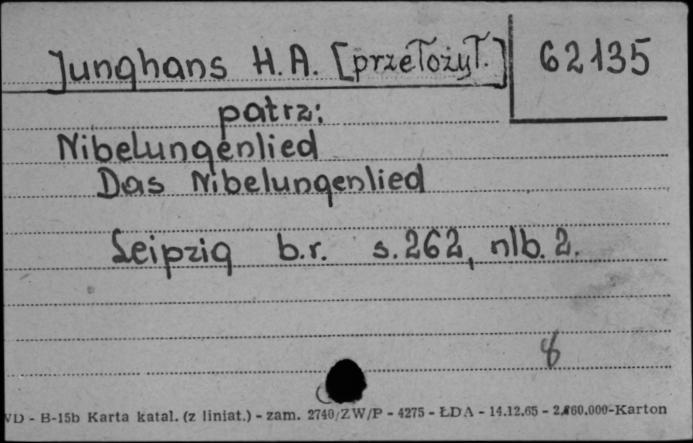 Junghans H.A. [przełożył.] 62135
patrz:
Nibelungenlied
Das Nibelungenlied
Leipzig b.r. s.262, nlb. 2.
8
VD - B-15b Karta katal. (z liniat.) - zam. 2740/ZW/P - 4275 - ŁDA - 14.12.65 - 2.860.000-Karton